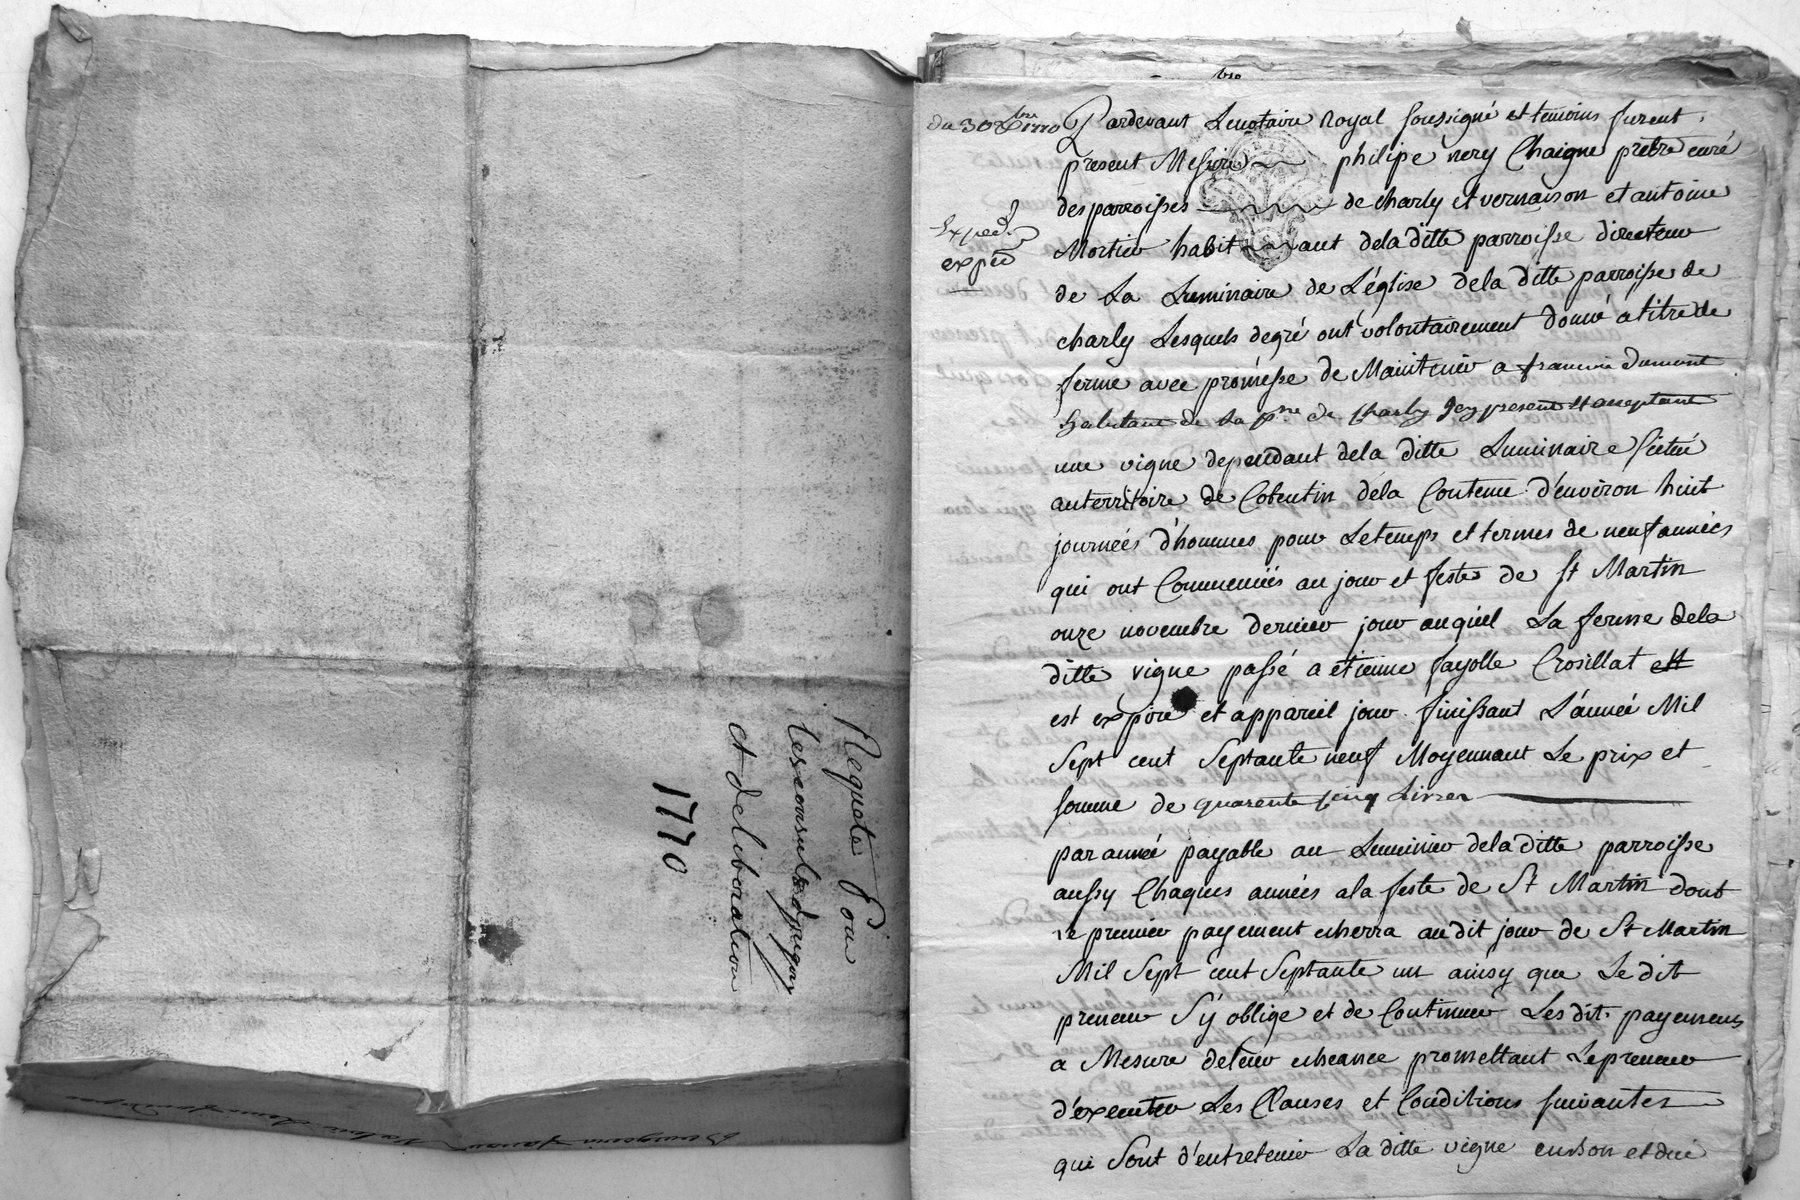 Requete Pour
les consuls
et deliberation
1770
du 30 xbre 1770
Exped.
exped
Pardevant Lenotaire Royal soussigné et temoins furent
present Messire philipe nery Chaigne prêtre curé
des parroisses de charly et vernaison et antoine
Mortier habitant dela ditte parroisse directeur
de La Luminaire de L'église dela ditte parroisse de
charly Lesquels degré ont volontairement donné atitre de
ferme avec promesse de Maintenir a francois dumont
habitant de La psse de Charly Icy present et acceptant
une vigne dependant dela ditte Luminaire scitué
auterritoire de Cotentin dela Contenue d'environ huit
journeés d'hommes pour Letemps et termes de neuf années
qui ont Commencées au jour et feste de St Martin
onze novembre dernier jour auquel La ferme dela
ditte vigne passé a etienne fayolle Crosillat
est expiré et appareil jour finissant L'année Mil
Sept cent Septante neuf Moyennant Le prix et
somme de quarente cinq Livres
par année payable au Luminier dela ditte parroisse
aussy Chaques années ala feste de St Martin dont
le premier payement echerra audit jour de St Martin
Mil Sept cent Septante un ainsy que Le dit
preneur s'y oblige et de Continuer Lesdit. payements
a Mesure deleur echeance promettant Lepreneur
d'executer Les Clauses et Conditions suivantes
qui Sont d'entretenir La ditte vigne enbon et due